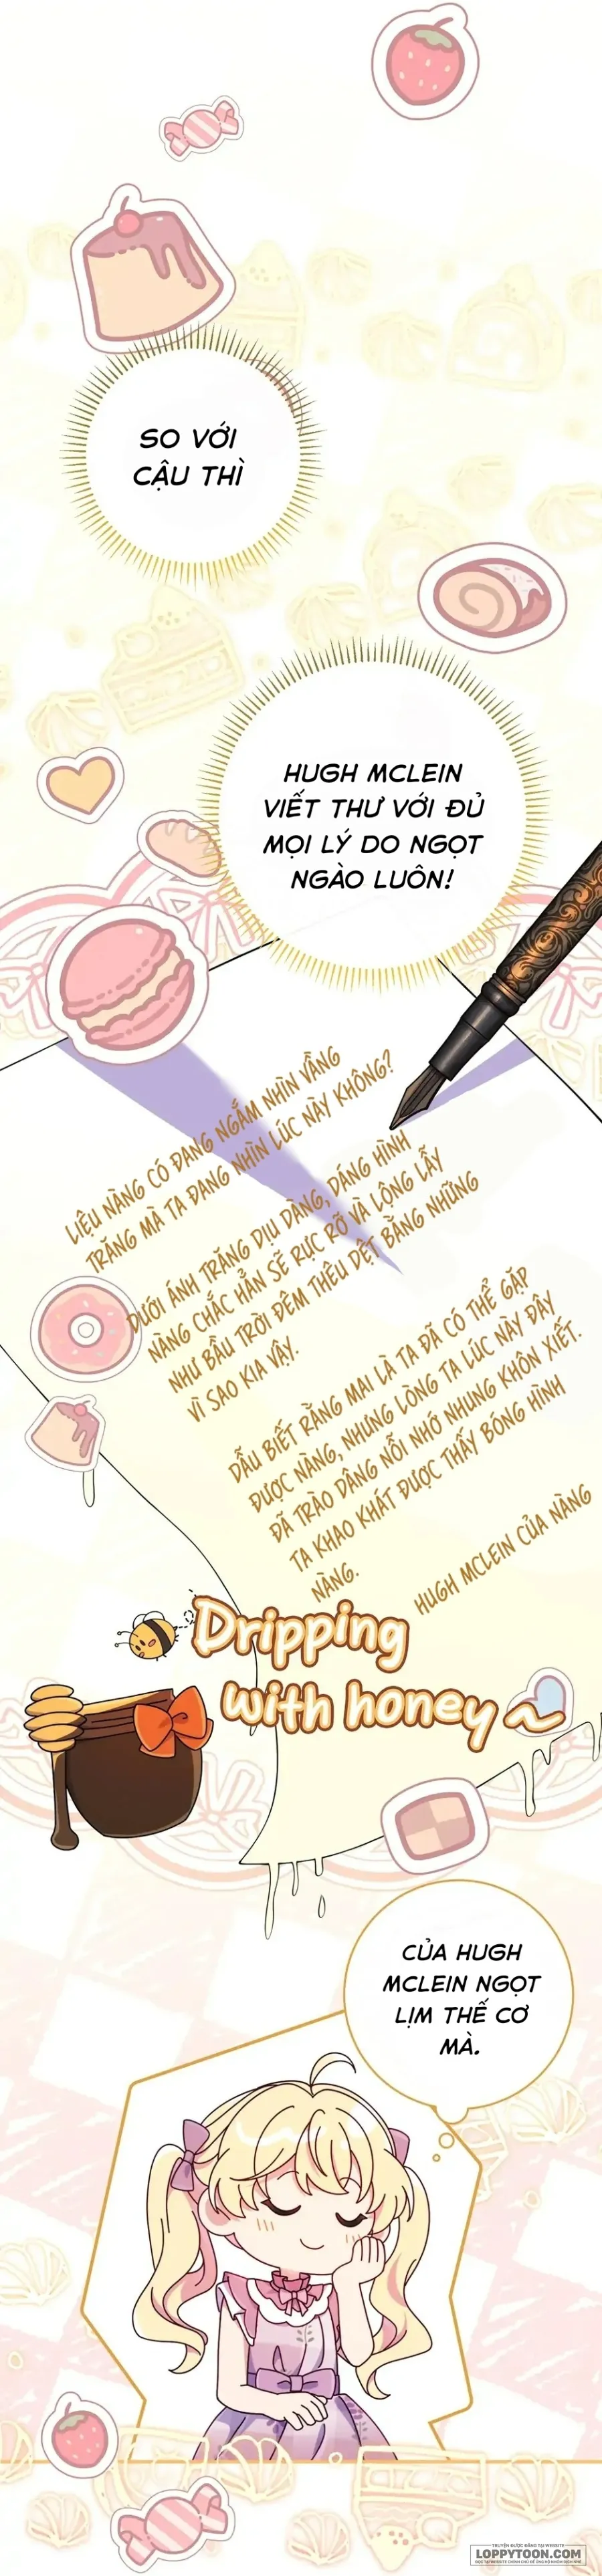 SO VỚI
CẬU THÌ
HUGH MCLEIN
VIẾT THƯ VỚI ĐỦ
MỌI LÝ DO NGỌT
NGÀO LUÔN!
LIỆU NÀNG CÓ ĐANG NGẮM NHÌN VẦNG
TRĂNG MÀ TA ĐANG NHÌN LÚC NÀY KHÔNG?
DƯỚI ÁNH TRĂNG DỊU DÀNG, DÁNG HÌNH
NÀNG CHẮC HẲN SẼ RỰC RỠ VÀ LỘNG LẪY
NHƯ BẦU TRỜI ĐÊM THÊU DỆT BẰNG NHỮNG
VÌ SAO KIA VẬY.
DẪU BIẾT RẰNG MAI LÀ TA ĐÃ CÓ THỂ GẶP
ĐƯỢC NÀNG, NHƯNG LÒNG TA LÚC NÀY ĐÂY
ĐÃ TRÀO DÂNG NỖI NHỚ NHUNG KHÔN XIẾT.
TA KHAO KHÁT ĐƯỢC THẤY BÓNG HÌNH
NÀNG.
HUGH MCLEIN CỦA NÀNG
Dripping
with honey~
CỦA HUGH
MCLEIN NGỌT
LỊM THẾ CƠ
MÀ.
TRUYỆN ĐƯỢC ĐĂNG TẠI WEBSITE
LOPPYTOON.COM
ĐỌC TẠI WEBSITE CHÍNH CHỦ ĐỂ ỦNG HỘ NHÓM DỊCH NHÉ